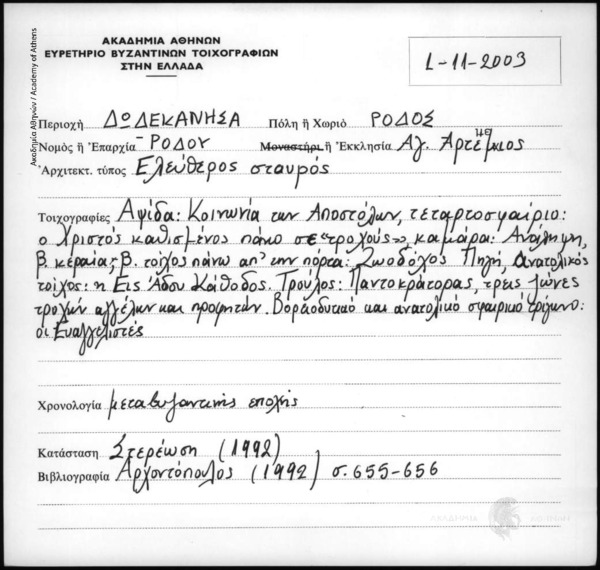 Ακαδημία Αθηνών / Academy of Athens
ΑΚΑΔΗΜΙΑ ΑΘΗΝΩΝ
ΕΥΡΕΤΗΡΙΟ ΒΥΖΑΝΤΙΝΩΝ ΤΟΙΧΟΓΡΑΦΙΩΝ
ΣΤΗΝ ΕΛΛΑΔΑ
1-11-2003
Περιοχὴ ΔΩΔΕΚΑΝΗΣΑ Πόλη ἢ Χωριὸ ΡΟΔΟΣ
Νομὸς ἢ Ἐπαρχία ΡΟΔΟΥ Μοναστήρι ἢ Ἐκκλησία Αγ. Αρτέμιος
Ἀρχιτεκτ. τύπος Ελεύθερος σταυρός
Τοιχογραφίες Αψίδα: Κοινωνία των Αποστόλων, τεταρτοσφαίριο:
ο Χριστός καθισμένος πάνω σε «τροχούς», καμάρα: Ανάληψη,
β. κεραία; β. τοίχος πάνω απ' την πόρτα: Ζωοδόχος Πηγή, ανατολικός
τοίχος: η Εις Άδου Κάθοδος. Τρούλος: Παντοκράτορας, τρεις ζώνες
τροχών αγγέλων και προφητών. Βορειοδυτικό και ανατολικό σφαιρικό τρίγωνο:
οι Ευαγγελιστές
Χρονολογία μεταβυζαντινής εποχής
Κατάσταση Στερέωση (1992)
Βιβλιογραφία Αρχοντόπουλος (1992) σ. 655-656
ΑΚΑΔΗΜΙΑ ΑΘΗΝΩΝ